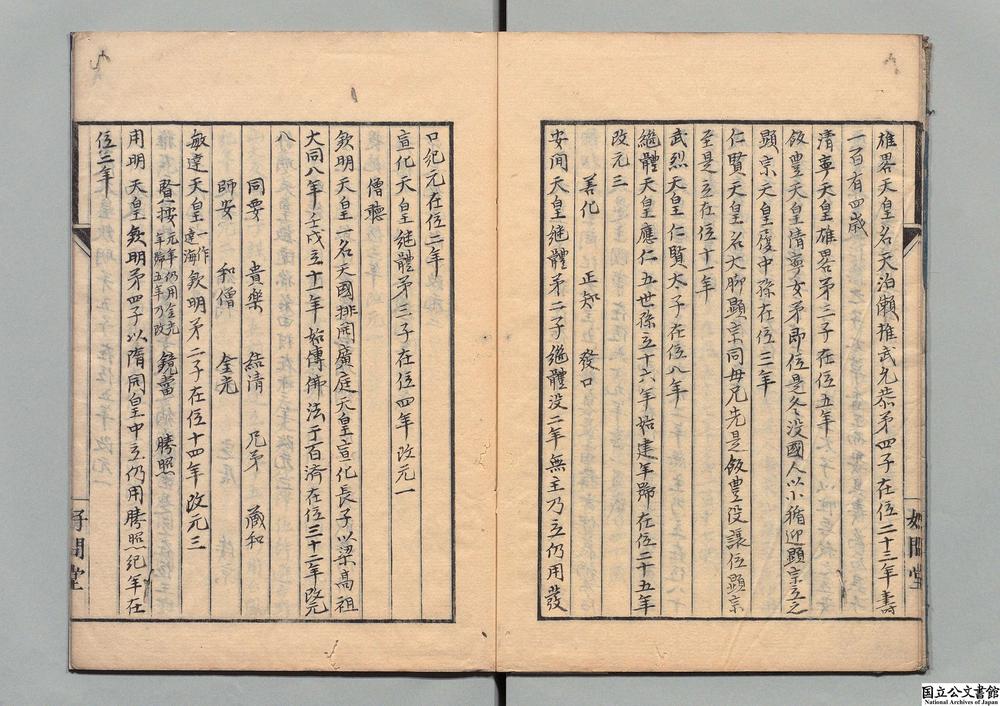 雄畧天皇名天泊瀬推武允恭第四子在位二十三年壽
一百有四歲
清寧天皇雄畧第三子在位五年
飯豊天皇清寧女弟即位是冬没國人以小循迎顯宗立之
顯宗天皇履中孫在位三年
仁賢天皇名大脚顯宗同毋兄先是飯豊没讓位顯宗
至是立在位十一年
武烈天皇仁賢太子在位八年
繼體天皇應仁五世孫立十六年始建年號在位二十五年
改元三
善化 正知 發口
安閒天皇継體第二子繼體没二年無主乃立仍用發
口紀元在位二年
宣化天皇継體第三子在位四年改元一
僧聽
欽明天皇一名天國排開廣庭天皇宣化長子以梁高祖
大同八年壬戌立十一年始傳佛法于百済在位三十二年改元
同要 貴樂 結清 兄弟 蔵和
師安 和僧 金光
敏達天皇一作達海欽明第二子在位十四年改元三
賢接元年仍用金光年號五年乃改 鏡當 勝照
用明天皇欽明第四子以隋開皇中立仍用勝照紀年在
位三年
好問堂
好問堂
国立公文書館
National Archives of Japan